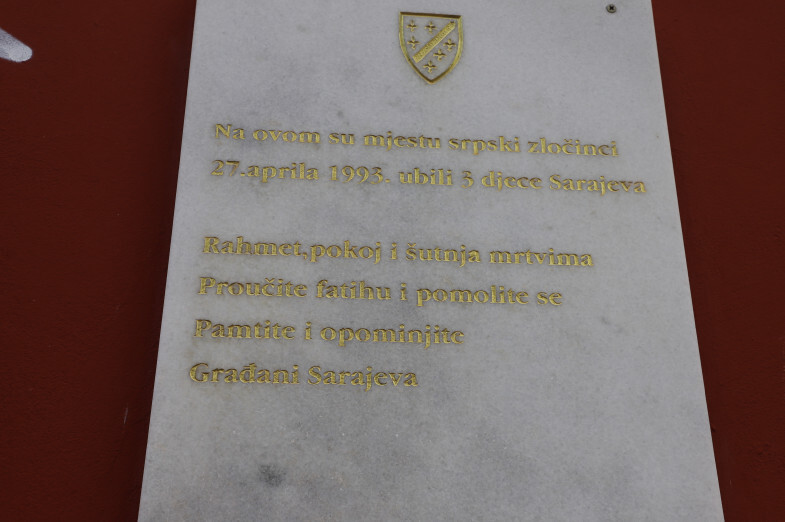 Na ovom su mjestu srpski zločinci
27.aprila 1993. ubili 3 djece Sarajeva
Rahmet,pokoj i šutnja mrtvima
Proučite fatihu i pomolite se
Pamtite i opominjite
Građani Sarajeva